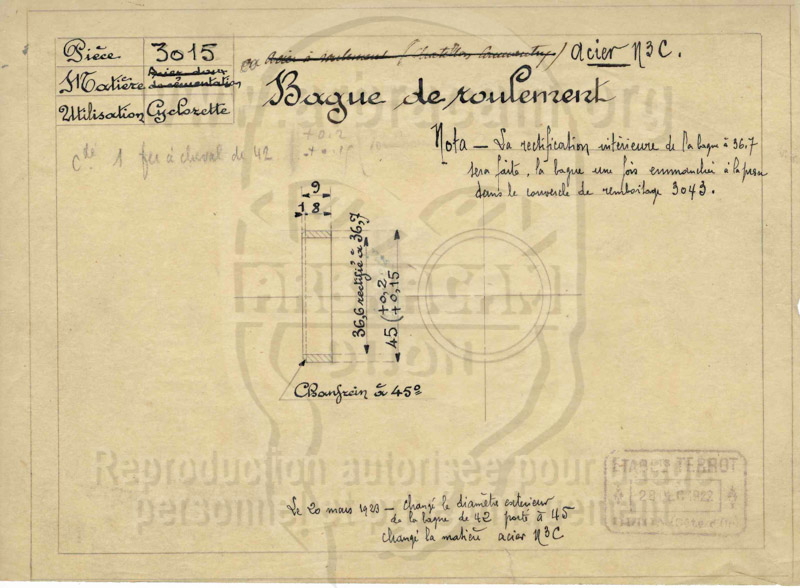 Pièce 3015
ou Acier à roulement / Acier N3C.
Matière Acier doux de cémentation
Utilisation Cyclorette
Bague de roulement
Cté 1 fer à cheval de 42
+0.2
+0.15
Nota - La rectification intérieure de la bague à 36.7
sera faite, la bague une fois emmanchée à la presse
dans le couvercle de remboitage 3043.
9
1 8
36,6 rectifié à 36,7
45 (+0,2
+0,15
Chanfrein à 45°
Le 20 mars 1923 - changé le diamètre extérieur
de la bague de 42 porté à 45
changé la matière acier N3C
ETABts TERROT
DIJON
Reproduction autorisée pour